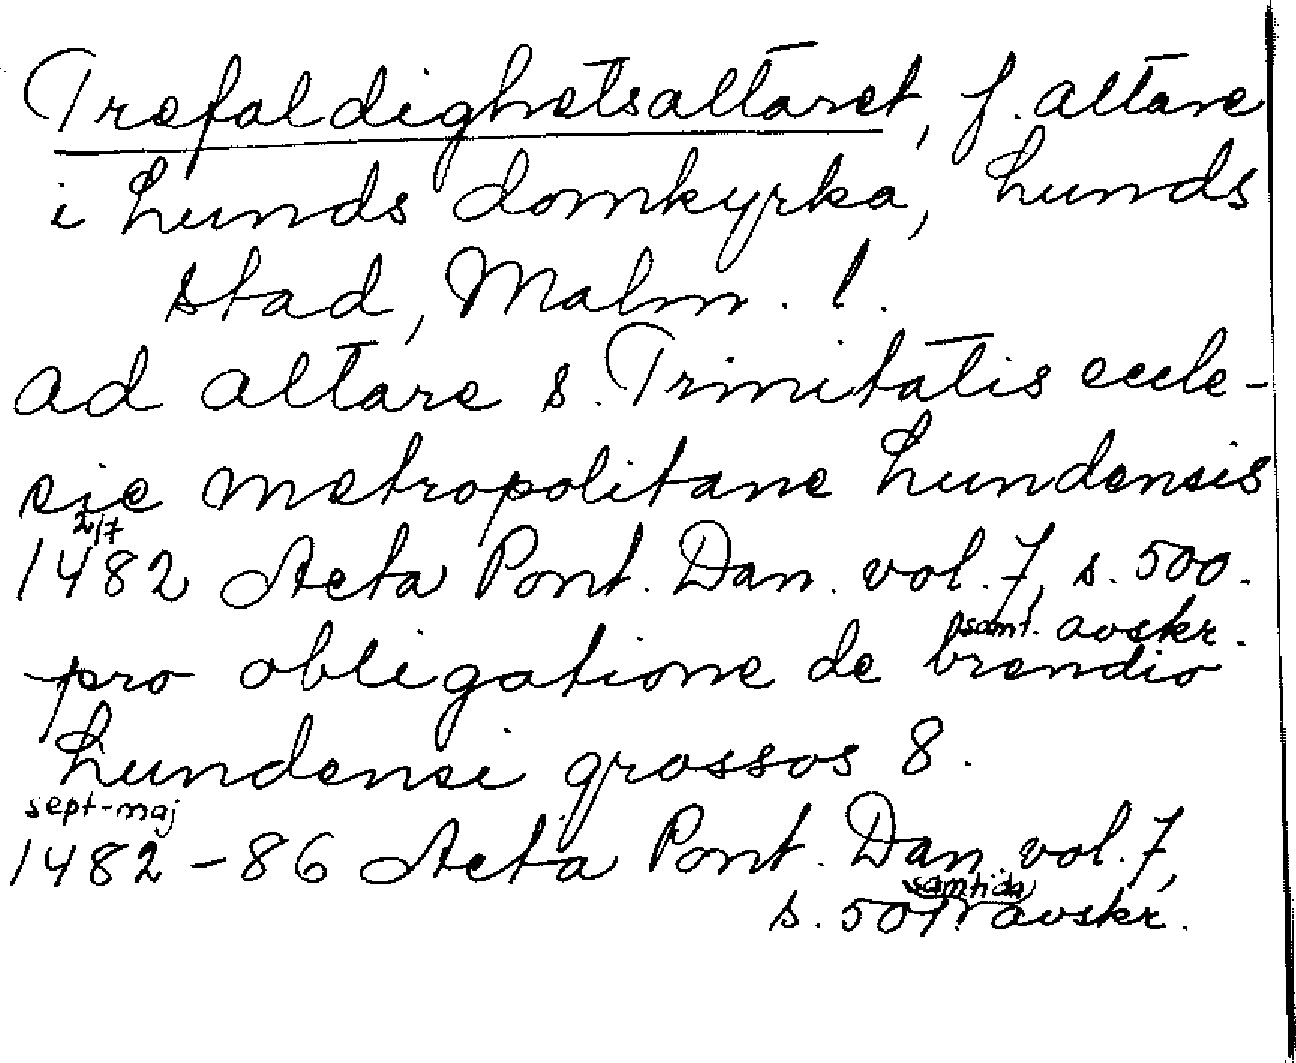 Trefaldighetsaltaret, f. altare
i Lunds domkyrka, Lunds
stad, Malm. l.
ad altare s. Trinitatis eccle-
sie metropolitane Lundensis
2/7
1482 Acta Pont. Dan. vol. 7, s. 500.
samt. avskr.
pro obligatione de brendio
Lundensi grossos 8.
sept-maj
1482-86 Acta Pont. Dan. vol. 7,
samtida
s. 507 avskr.